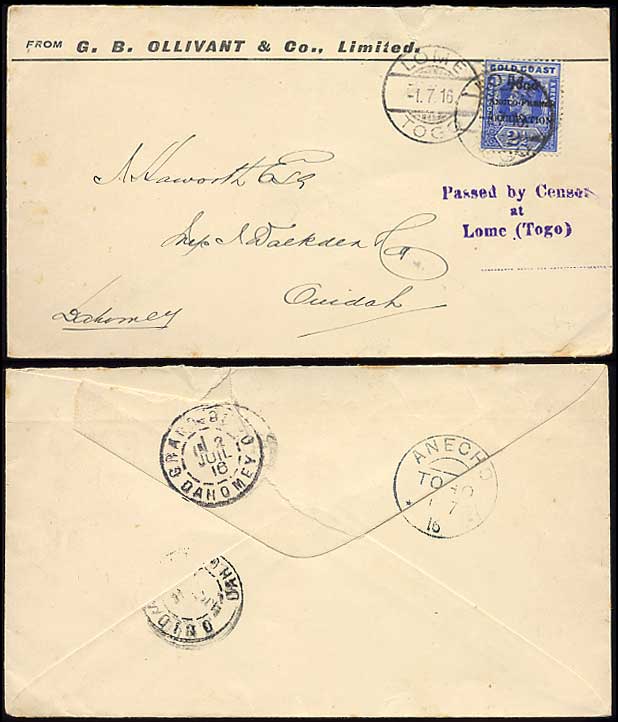 FROM G. B. OLLIVANT & Co., Limited.
LOME
-1.7.16
TOGO
GOLD COAST
TOGO
ANGLO-FRENCH
OCCUPATION
Passed by Censor
at
Lome (Togo)
J Haworth Esq
Ouidah
Dahomey
GRAND-POPO
2
JUIL
16
DAHOMEY
ANECHO
TOGO
1 7
16
OUIDAH